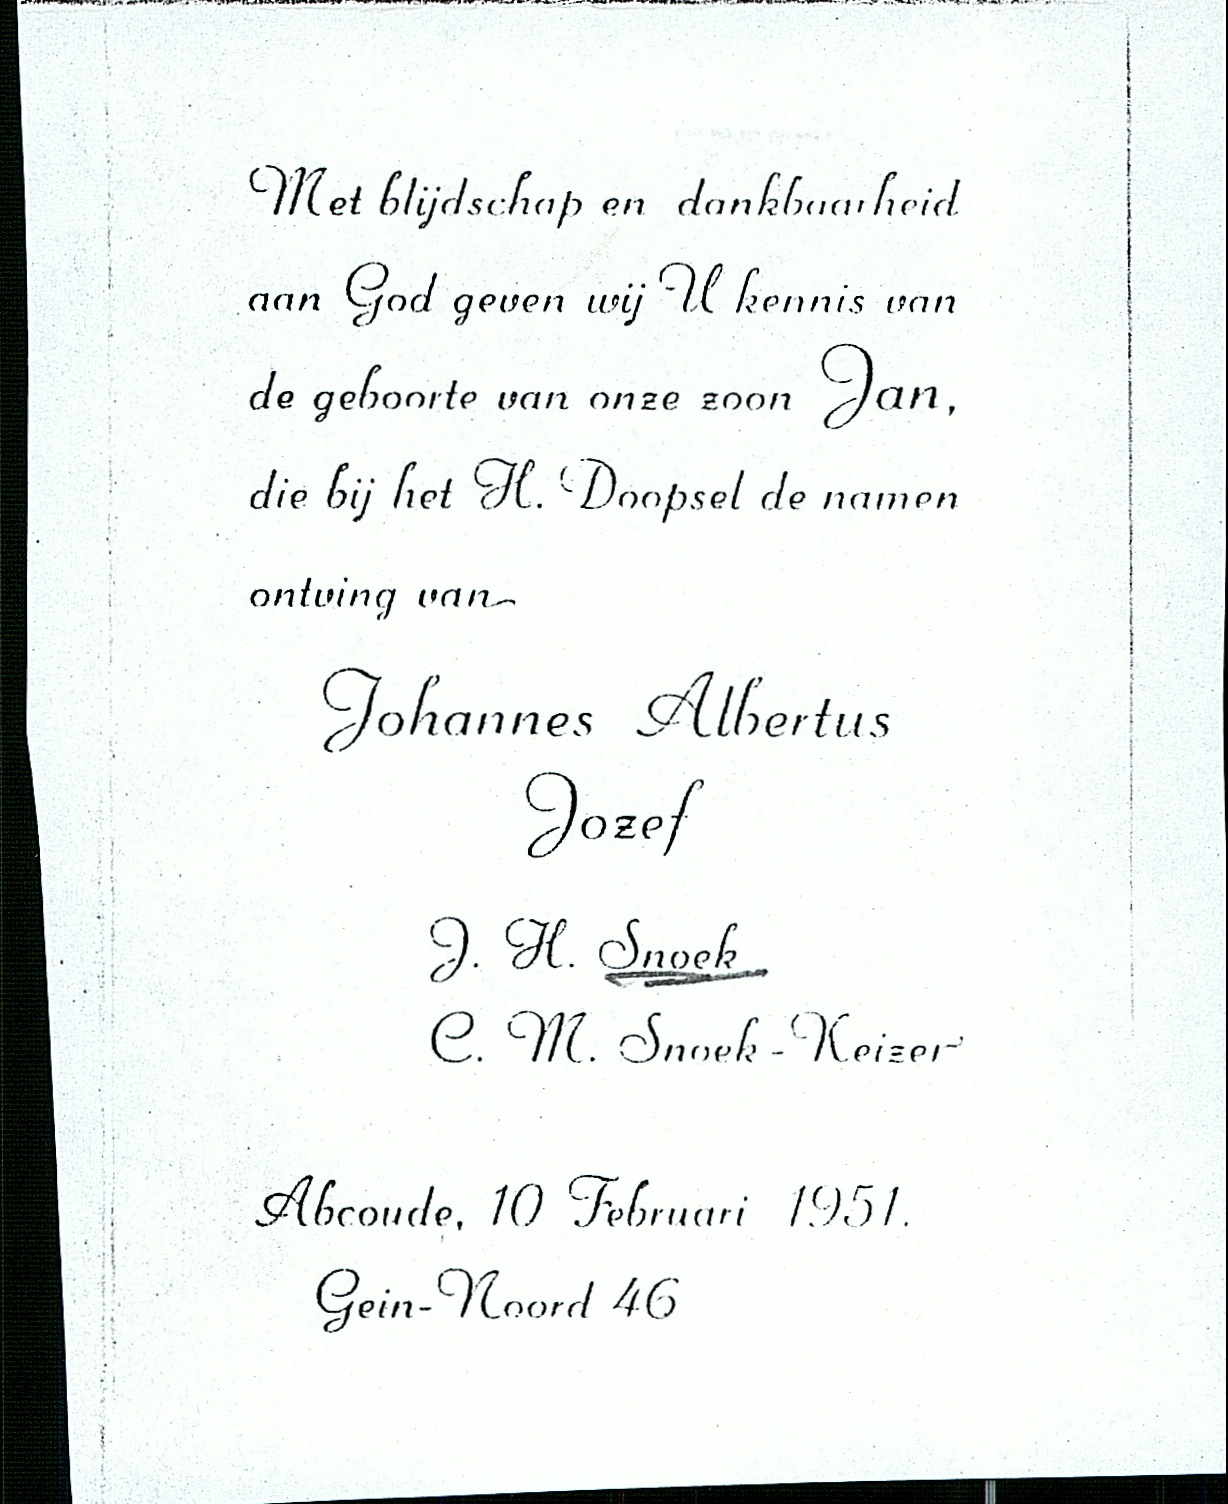 Met blijdschap en dankbaarheid
aan God geven wij U kennis van
de geboorte van onze zoon Jan,
die bij het H. Doopsel de namen
ontving van
Johannes Albertus
Jozef
J. H. Snoek
C. M. Snoek-Keizer
Abcoude, 10 Februari 1951.
Gein-Noord 46